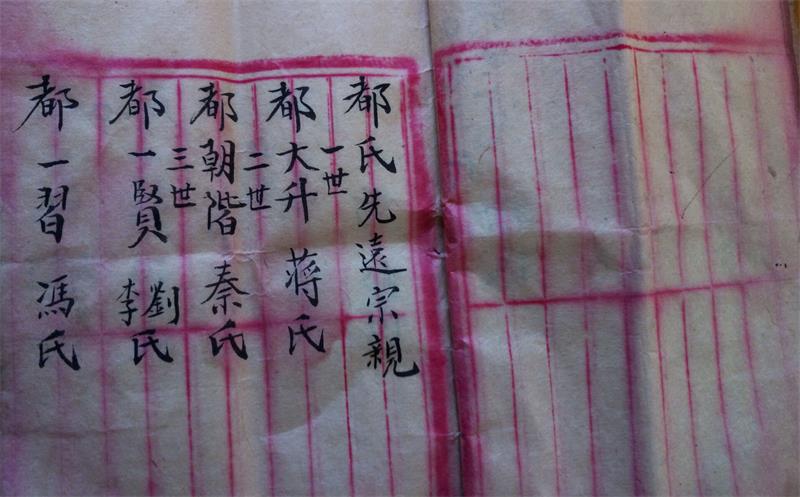 都氏先遠宗親
一世
都大升 蔣氏
二世
都朝階 秦氏
三世
都一賢 劉李氏
都一習 馮氏